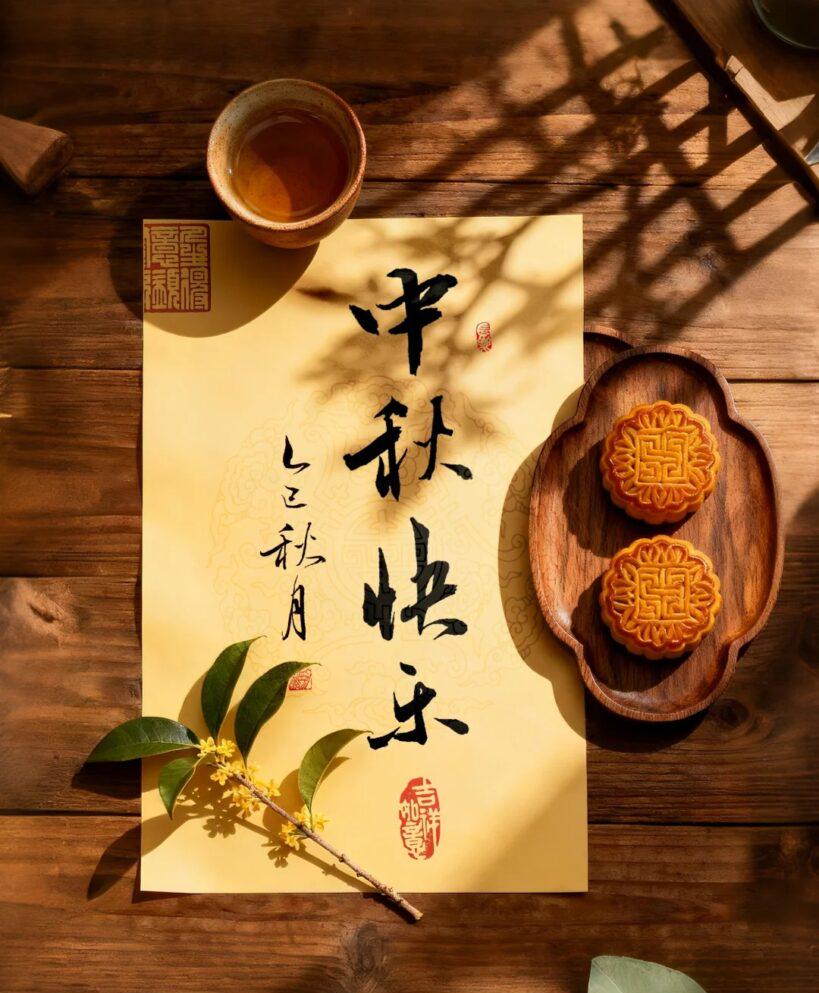 中秋快乐
乙巳秋月
吉祥如意